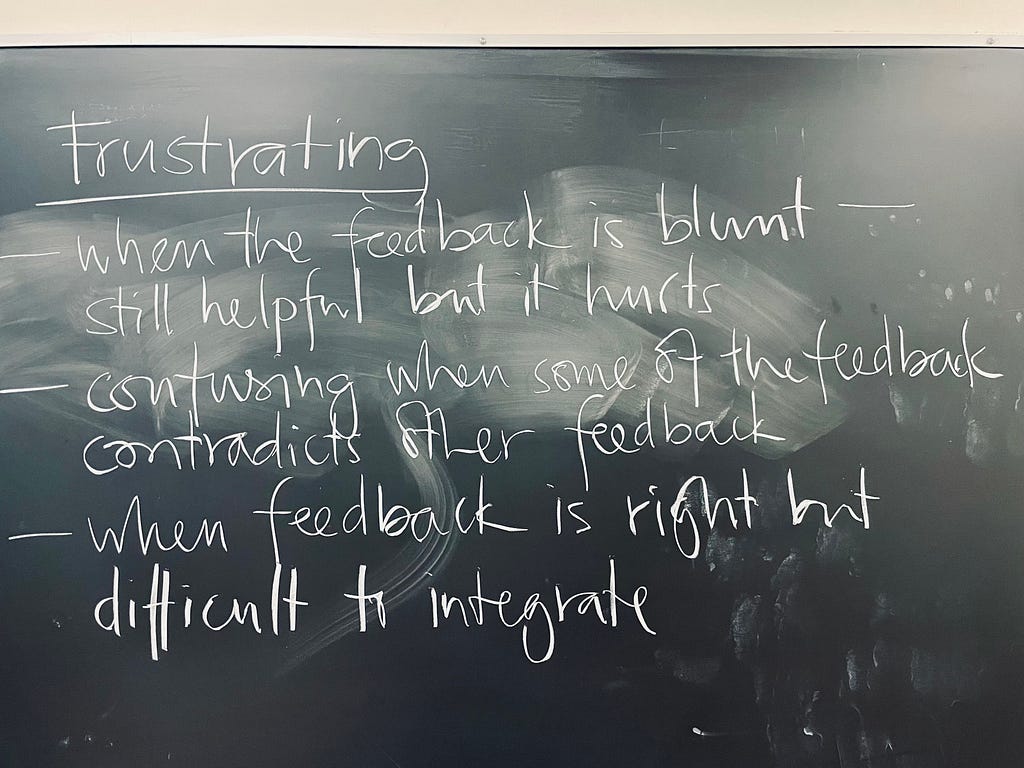 Frustrating
— when the feedback is blunt —
still helpful but it hurts
— confusing when some of the feedback
contradicts other feedback
— when feedback is right but
difficult to integrate